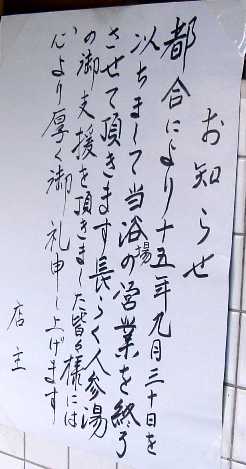 お知らせ
都合により十五年九月三十日を
以ちまして当浴場の営業を終了
させて頂きます長らく人参湯
の御支援を頂きました皆々様には
心より厚く御礼申し上げます
店主